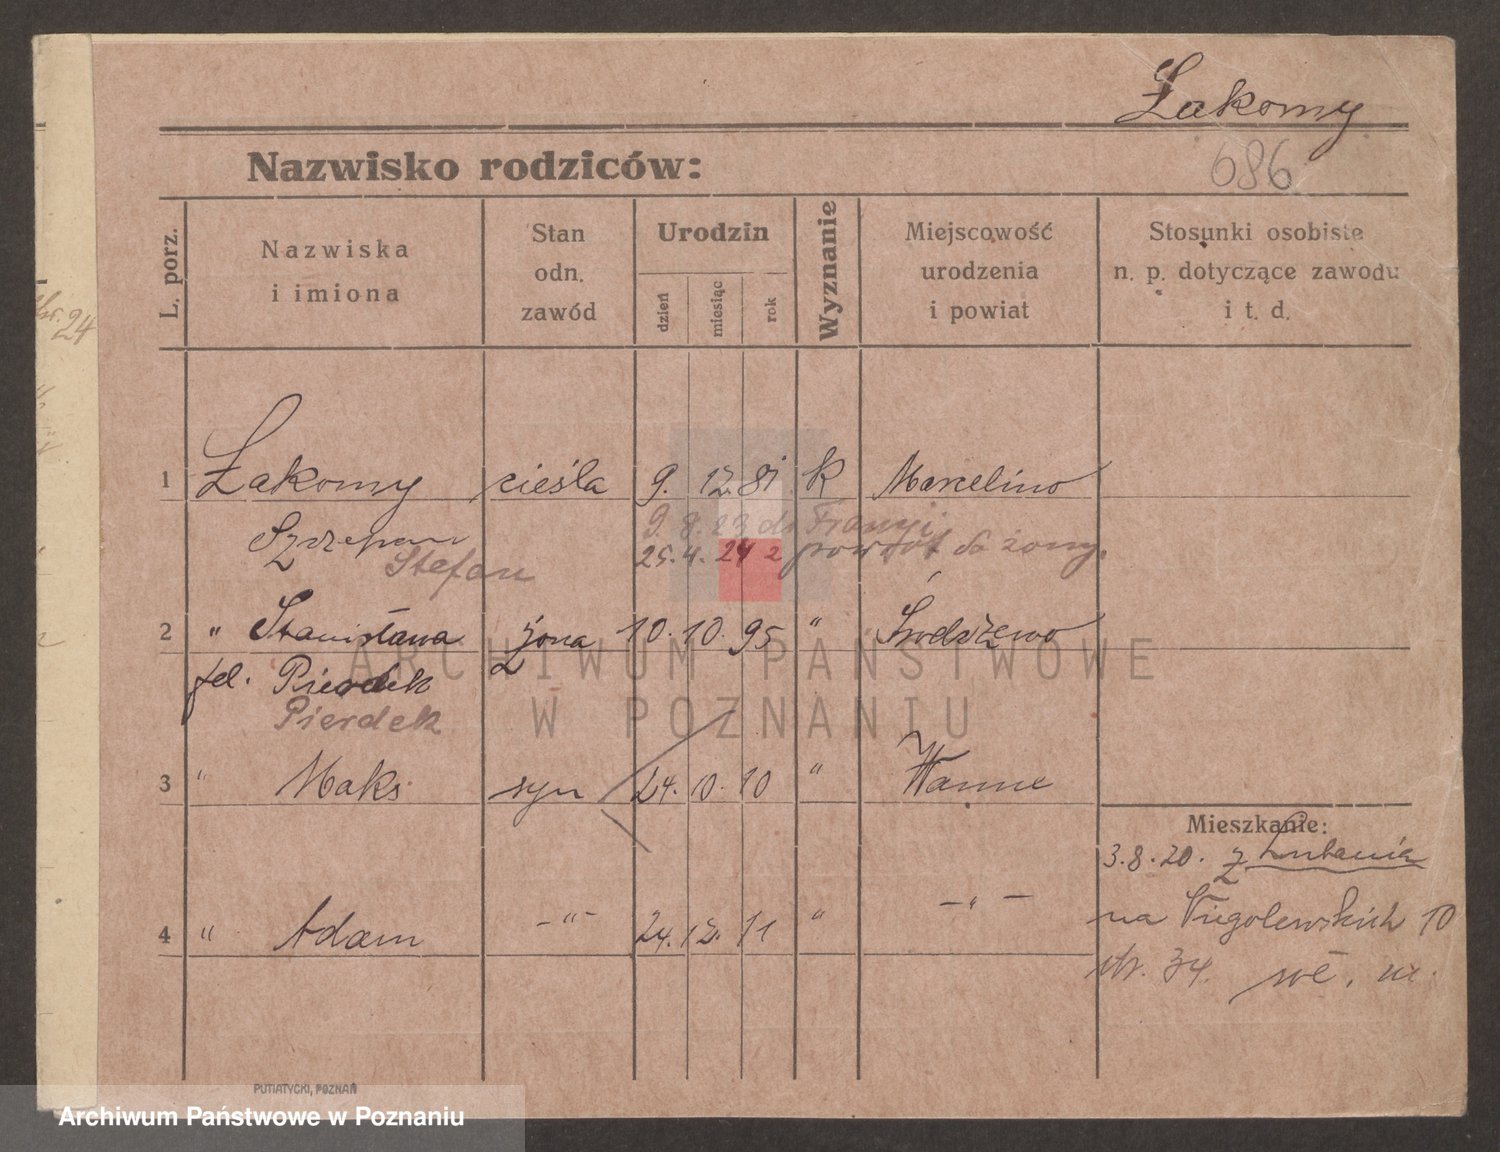 Łakomy
686
Nazwisko rodziców:
L. porz.
Nazwiska i imiona
Stan odn. zawód
Urodzin
dzień
miesiąc
rok
Wyznanie
Miejscowość urodzenia i powiat
Stosunki osobiste n. p. dotyczące zawodu i t. d.
24
1 Łakomy cieśla 9. 12. 81. k Marcelino
Szczepan 9. 8. 23 do Francji
Stefan 25. 4. 24 z powrót do żony.
2 " Stanisława żona 10. 10. 95 " Środszewo
fel. Pierdek
Pierdek
3 " Maks syn 24. 10. 10 " Wanne
Mieszkanie:
3. 8. 20. z Lubania
na Niegolewskich 10
4 " Adam -"- 24. 12. 11 " -"-
str. 34.
ARCHIWUM PAŃSTWOWE
W POZNANIU
PUTIATYCKI, POZNAŃ
Archiwum Państwowe w Poznaniu